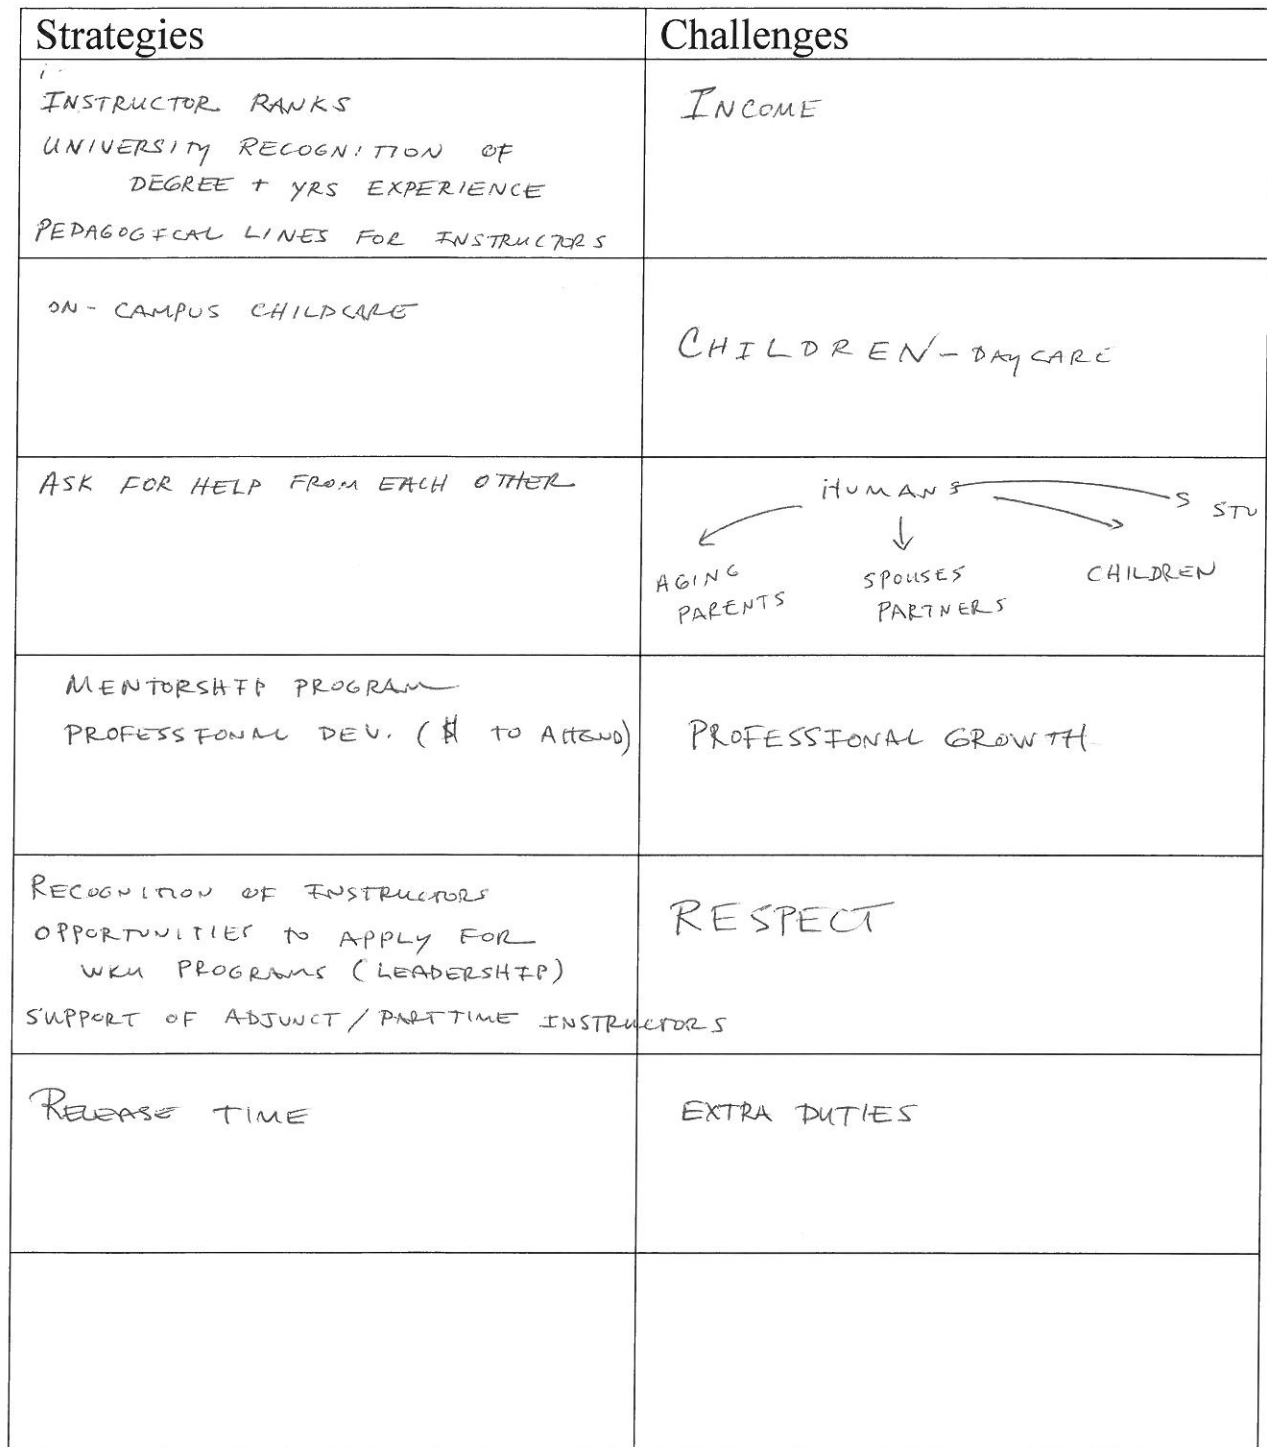 Strategies
Challenges
INSTRUCTOR RANKS
UNIVERSITY RECOGNITION OF
DEGREE + YRS EXPERIENCE
PEDAGOGICAL LINES FOR INSTRUCTORS
INCOME
ON-CAMPUS CHILDCARE
CHILDREN-DAYCARE
ASK FOR HELP FROM EACH OTHER
HUMANS
S STU
AGING
PARENTS
SPOUSES
PARTNERS
CHILDREN
MENTORSHIP PROGRAM
PROFESSIONAL DEV. ($ TO ATTEND)
PROFESSIONAL GROWTH
RECOGNITION OF INSTRUCTORS
OPPORTUNITIES TO APPLY FOR
WKU PROGRAMS (LEADERSHIP)
SUPPORT OF ADJUNCT/PART TIME INSTRUCTORS
RESPECT
RELEASE TIME
EXTRA DUTIES